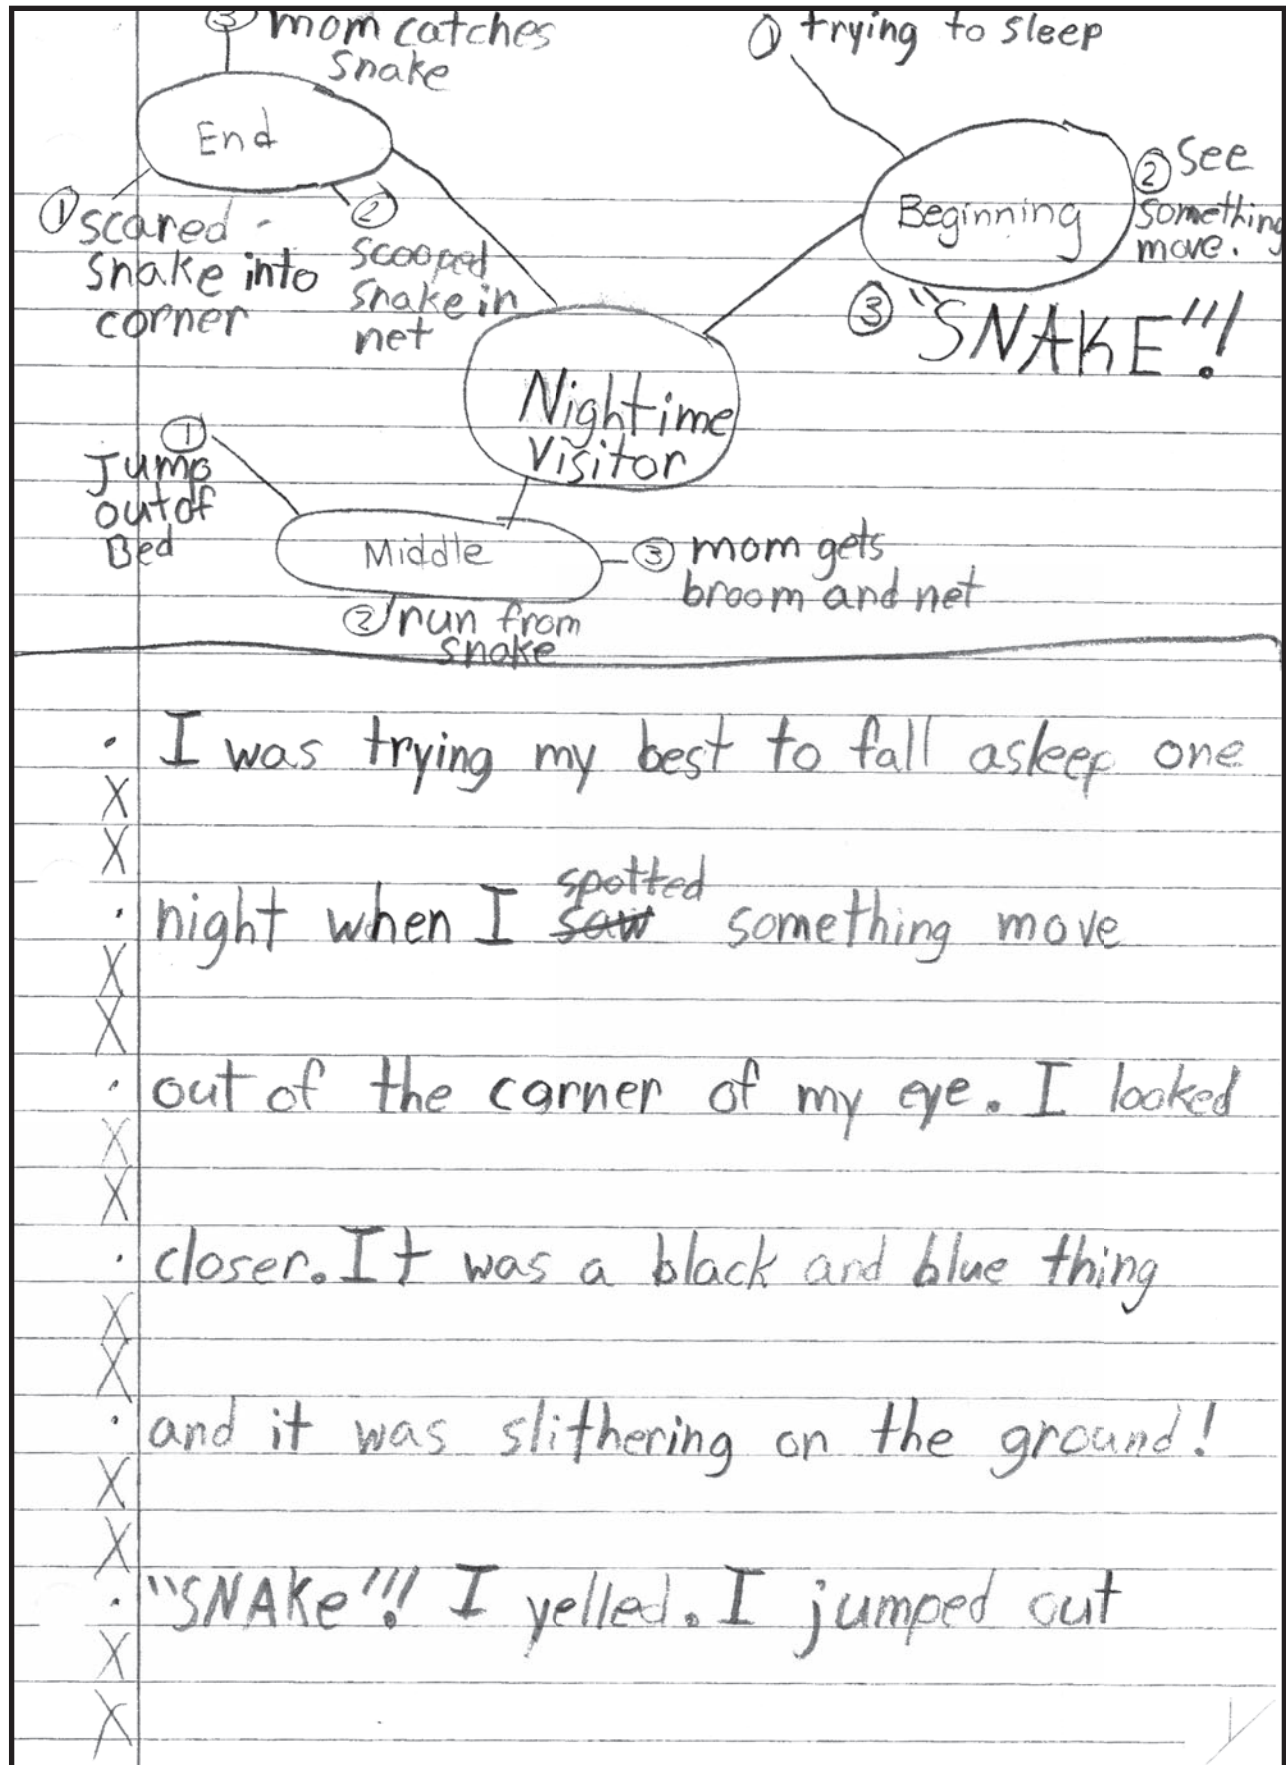 ③ mom catches
snake
End
① scared
snake into
corner
②
scooped
snake in
net
① trying to sleep
Beginning
② see
something
move.
③ "SNAKE"!!!
Nightime
Visitor
①
Jump
out of
Bed
Middle
② run from
snake
③ mom gets
broom and net
· I was trying my best to fall asleep one
X
X
spotted
· night when I saw something move
X
X
· out of the corner of my eye. I looked
X
X
· closer. It was a black and blue thing
X
X
· and it was slithering on the ground!
X
X
· "SNAKe"!!! I yelled. I jumped out
X
X